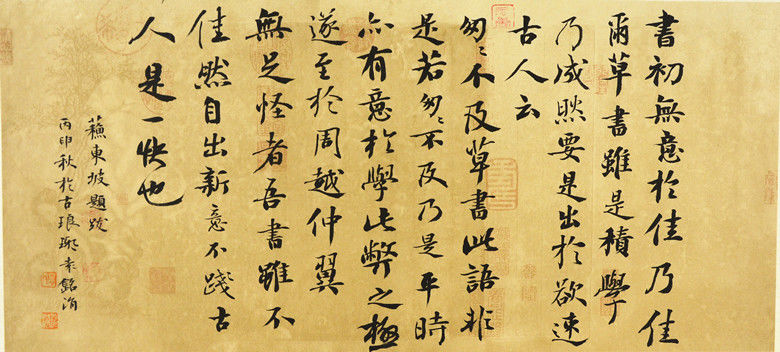 書初無意於佳乃佳
爾草書雖是積學
乃成然要是出於欲速
古人云
匆〻不及草書此語非
是若匆〻不及乃是平時
亦有意於學此弊之極
遂至於周越仲翼
無足怪者吾書雖不
佳然自出新意不踐古
人是一快也
蘓東坡題跋
丙申秋於古琅琊銘